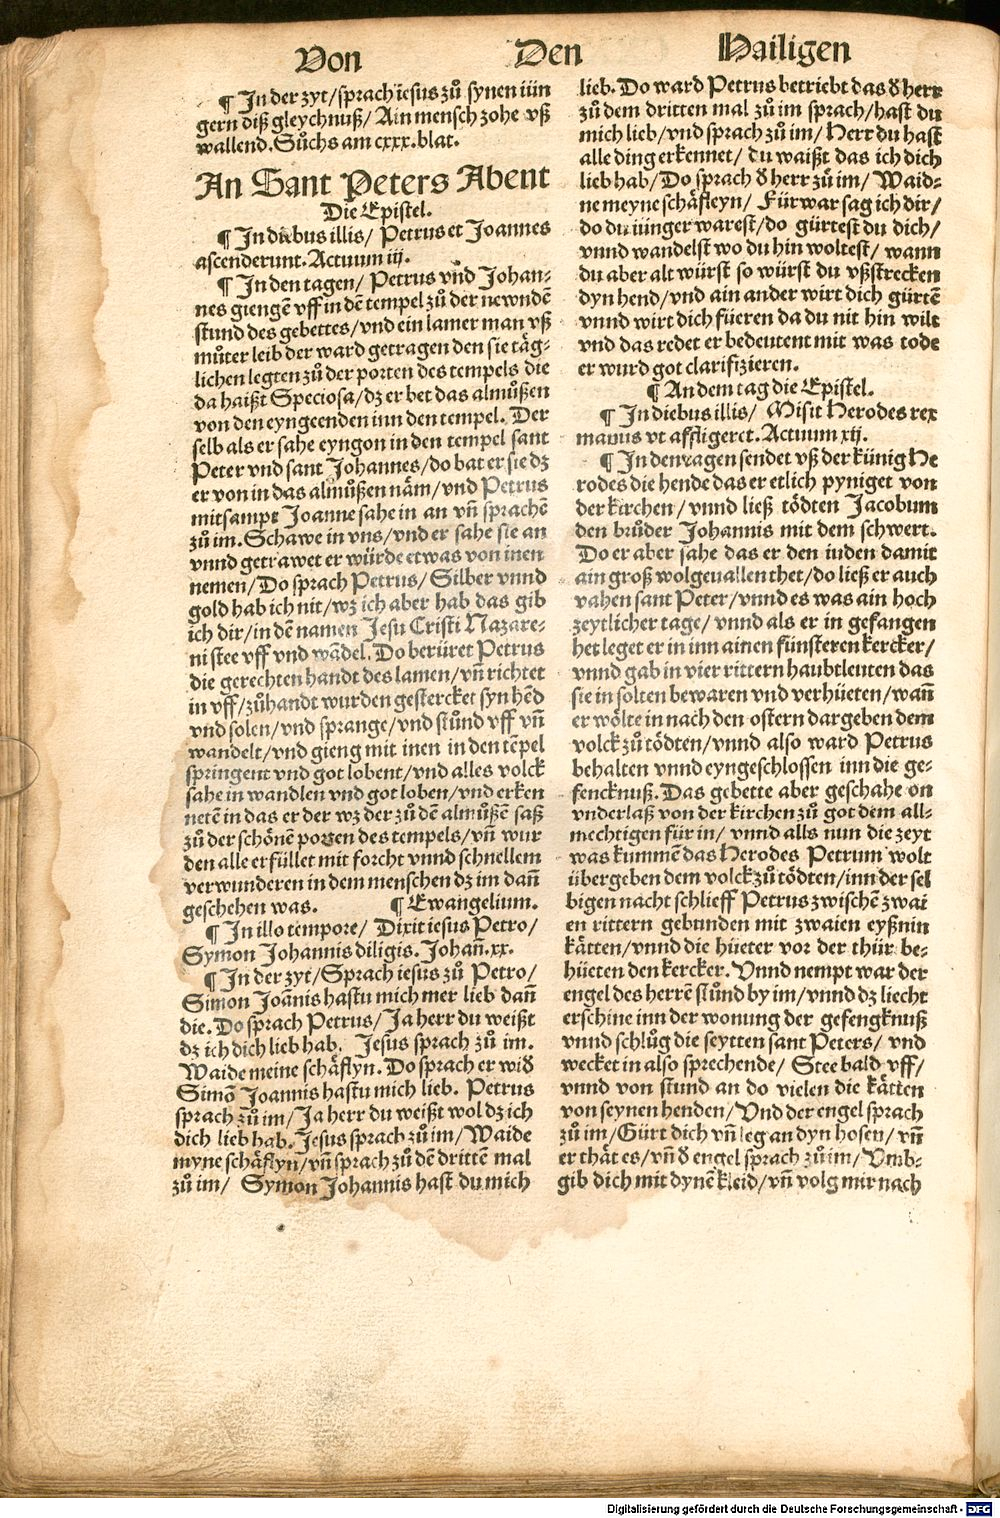 Von Den Hailigen
¶ In der zyt/sprach iesus zů synen iün
gern diß gleychnuß/ Ain mensch zohe vß
wallend. Sůchs am cxxx. blat.
An Sant Peters Abent
Die Epistel.
¶ In diebus illis/ Petrus et Joannes
ascenderunt. Actuum iij.
¶ In den tagen/ Petrus vnd Johan-
nes giengē vff in dē tempel zů der newndē
stund des gebettes/vnd ein lamer man vß
můter leib der ward getragen den sie täg-
lichen legten zů der porten des tempels die
da haißt Speciosa/dz er bet das almůßen
von den eyngeenden inn den tempel. Der
selb als er sahe eyngon in den tempel sant
Peter vnd sant Johannes/do bat er sie dz
er von in das almůßen näm/vnd Petrus
mitsampt Joanne sahe in an vñ sprachē
zů im. Schawe in vns/vnd er sahe sie an
vnnd getrawet er würde etwas von inen
nemen/Do sprach Petrus/ Silber vnnd
gold hab ich nit/wz ich aber hab das gib
ich dir/in dē namen Jesu Cristi Nazare-
ni stee vff vnd wādel. Do berüret Petrus
die gerechten handt des lamen/vñ richtet
in vff/zůhandt wurden gestercket syn hēd
vnd solen/vnd sprange/vnd stůnd vff vñ
wandelt/vnd gieng mit inen in den tēpel
springent vnd got lobent/vnd alles volck
sahe in wandlen vnd got loben/vnd erken
netē in das er der wz der zů dē almůßē saß
zů der schönē porten des tempels/vñ wur
den alle erfüllet mit forcht vnnd schnellem
verwunderen in dem menschen dz im dañ
geschehen was. ¶ Ewangelium.
¶ In illo tempore/ Dixit iesus Petro/
Symon Johannis diligis. Johañ. xx.
¶ In der zyt/Sprach iesus zů Petro/
Simon Joānis hastu mich mer lieb dañ
die. Do sprach Petrus/ Ja herr du weißt
dz ich dich lieb hab. Jesus sprach zů im.
Waide meine schäflyn. Do sprach er wiđ
Simō Joannis hastu mich lieb. Petrus
sprach zů im/ Ja herr du weißt wol dz ich
dich lieb hab. Jesus sprach zů im/ Waide
myne schäflyn/vñ sprach zů dē drittē mal
zů im/ Symon Johannis hast du mich
lieb. Do ward Petrus betriebt das đ herr
zů dem dritten mal zů im sprach/hast du
mich lieb/vnd sprach zů im/ Herr du hast
alle ding erkennet/ du waißt das ich dich
lieb hab/ Do sprach đ herr zů im/ Waid-
ne meyne schäfleyn/ Fürwar sag ich dir/
do du iünger warest/do gürtest du dich/
vnnd wandelst wo du hin woltest/ wann
du aber alt würst so würst du vßstrecken
dyn hend/vnd ain ander wirt dich gürtē
vnnd wirt dich füeren da du nit hin wilt
vnd das redet er bedeutent mit was tode
er wurd got clarifizieren.
¶ An dem tag die Epistel.
¶ In diebus illis/ Misit Herodes rex
manus vt affligeret. Actuum xij.
¶ In den tagen sendet vß der künig He
rodes die hende das er etlich pyniget von
der kirchen/ vnnd ließ tödten Jacobum
den brůder Johannis mit dem schwert.
Do er aber sahe das er den iuden damit
ain groß wolgeuallen thet/do ließ er auch
vahen sant Peter/vnnd es was ain hoch
zeytlicher tage/ vnnd als er in gefangen
het leget er in inn ainen fünsteren kercker/
vnnd gab in vier rittern haubtleuten das
sie in solten bewaren vnd verhüeten/wañ
er wölte in nach den ostern dargeben dem
volck zů tödten/vnnd also ward Petrus
behalten vnnd eyngeschlossen inn die ge-
fencknuß. Das gebette aber geschahe on
vnderlaß von der kirchen zů got dem all-
mechtigen für in/ vnnd alls nun die zeyt
was kummē das Herodes Petrum wolt
übergeben dem volck zů tödten/inn der sel
bigen nacht schlieff Petrus zwischē zwai
en rittern gebunden mit zwaien eyßnin
kätten/vnnd die hüeter vor der thür be-
hüeten den kercker. Vnnd nempt war der
engel des herrē stůnd by im/vnnd dz liecht
erschine inn der wonung der gefengknuß
vnnd schlůg die seytten sant Peters/ vnd
wecket in also sprechende/ Stee bald vff/
vnnd von stund an do vielen die kätten
von seynen henden/ Vnd der engel sprach
zů im/Gürt dich vñ leg an dyn hosen/ vñ
er thät es/vñ đ engel sprach zů im/ Vmb-
gib dich mit dynē kleid/vñ volg mir nach
Digitalisierung gefördert durch die Deutsche Forschungsgemeinschaft - DFG